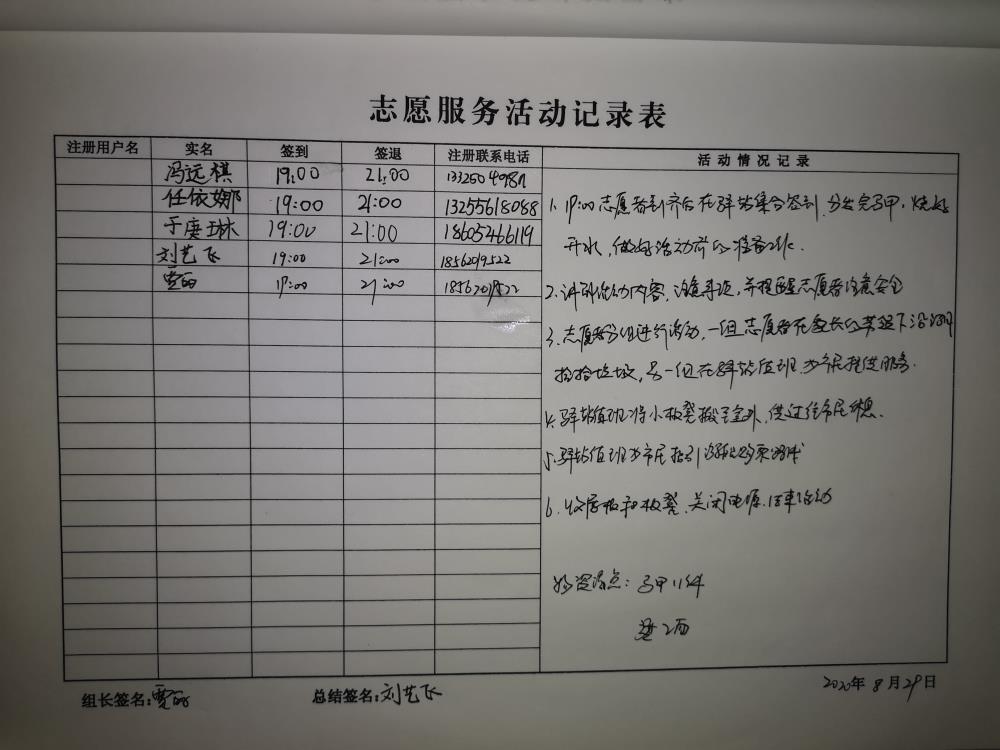 志愿服务活动记录表
注册用户名 实名 签到 签退 注册联系电话 活动情况记录
冯远棋 19:00 21:00
任依娜 19:00 21:00 13255618088
于庚琳 19:00 21:00 18605466119
刘艺飞 19:00 21:00 18562019522
贾丽 19:00 21:00
1. 19:00志愿者到齐后在驿站集合签到,分发完马甲,烧好
开水,做好活动前的准备工作.
2.讲到活动内容,注意事项,并提醒志愿者注意安全
3.志愿者分组进行活动,一组志愿者在组长的带领下沿河
捡拾垃圾,另一组在驿站值班,为市民提供服务.
4.驿站值班将小板凳搬至室外,供过往市民休息.
5.驿站值班为市民指引
6.收展板和板凳,关闭电源,结束活动
物资清点:马甲11件
2面
组长签名:贾丽 总结签名:刘艺飞
2020年8月29日